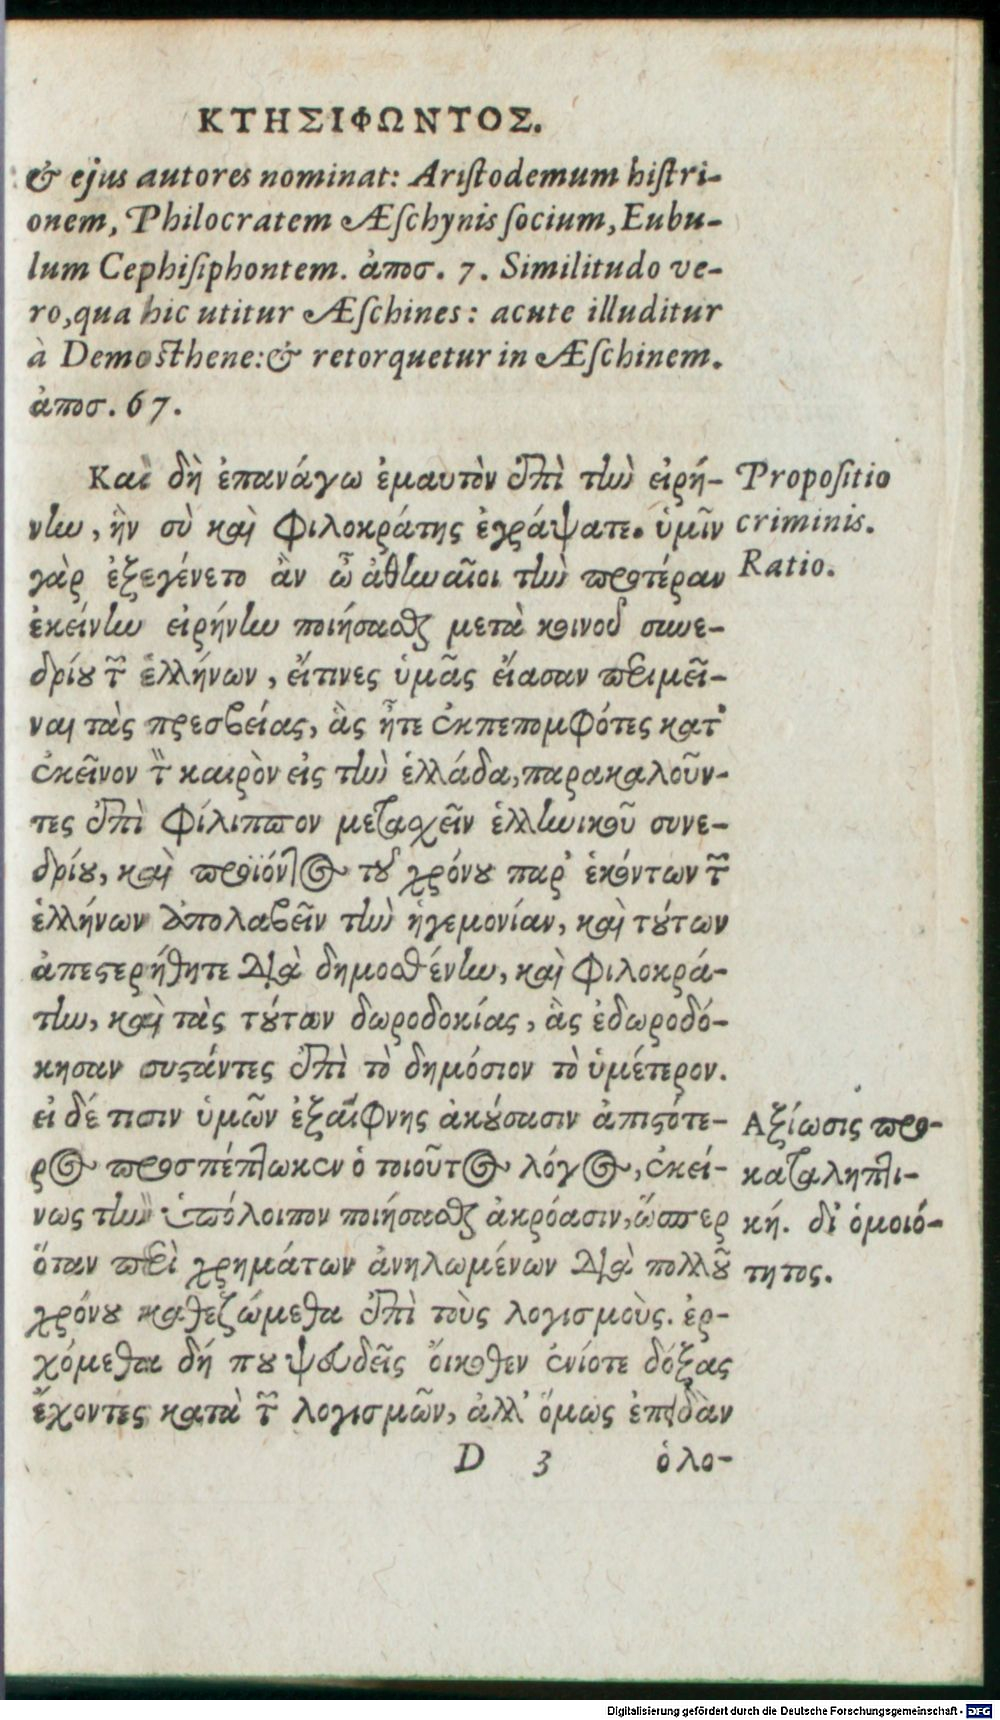 ΚΤΗΣΙΦΩΝΤΟΣ.
& ejus autores nominat: Aristodemum histri-
onem, Philocratem Æschynis socium, Eubu-
lum Cephisiphontem. ἀποσ. 7. Similitudo ve-
ro, qua hic utitur Æschines: acute illuditur
à Demosthene: & retorquetur in Æschinem.
ἀποσ. 67.
Καὶ δὴ ἐπανάγω ἐμαυτὸν ἐπὶ τὴν εἰρή-
νην, ἣν σὺ καὶ Φιλοκράτης ἐγράψατε. ὑμῖν
γὰρ ἐξεγένετο ἂν ὦ ἀθηναῖοι τὴν προτέραν
ἐκείνην εἰρήνην ποιήσασθαι μετὰ κοινοῦ συνε-
δρίου τῶν ἑλλήνων, εἴτινες ὑμᾶς εἴασαν περιμεῖ-
ναι τὰς πρεσβείας, ἃς ἦτε ἐκπεπομφότες κατ'
ἐκεῖνον τὸν καιρὸν εἰς τὴν ἑλλάδα, παρακαλοῦν-
τες ἐπὶ Φίλιππον μετασχεῖν ἑλληνικοῦ συνε-
δρίου, καὶ προϊόντος τοῦ χρόνου παρ' ἑκόντων τῶν
ἑλλήνων ἀπολαβεῖν τὴν ἡγεμονίαν, καὶ τούτων
ἀπεστερήθητε διὰ δημοσθένην, καὶ Φιλοκρά-
την, καὶ τὰς τούτων δωροδοκίας, ἃς ἐδωροδό-
κησαν συστάντες ἐπὶ τὸ δημόσιον τὸ ὑμέτερον.
εἰ δέ τισιν ὑμῶν ἐξαίφνης ἀκούσασιν ἀπιστότε-
ρος προσπέπτωκεν ὁ τοιοῦτος λόγος, ἐκεί-
νως τὴν ὑπόλοιπον ποιήσασθαι ἀκρόασιν, ὥσπερ
ὅταν περὶ χρημάτων ἀνηλωμένων διὰ πολλοῦ
χρόνου καθεζώμεθα ἐπὶ τοὺς λογισμοὺς. ἐρ-
χόμεθα δή που ψευδεῖς οἴκοθεν ἐνίοτε δόξας
ἔχοντες κατὰ τῶν λογισμῶν, ἀλλ' ὅμως ἐπειδὰν
D 3 ὁ λο-
Propositio
criminis.
Ratio.
Αξίωσις προ-
καταληπτι-
κή. δι' ὁμοιό-
τητος.
Digitalisierung gefördert durch die Deutsche Forschungsgemeinschaft - DFG